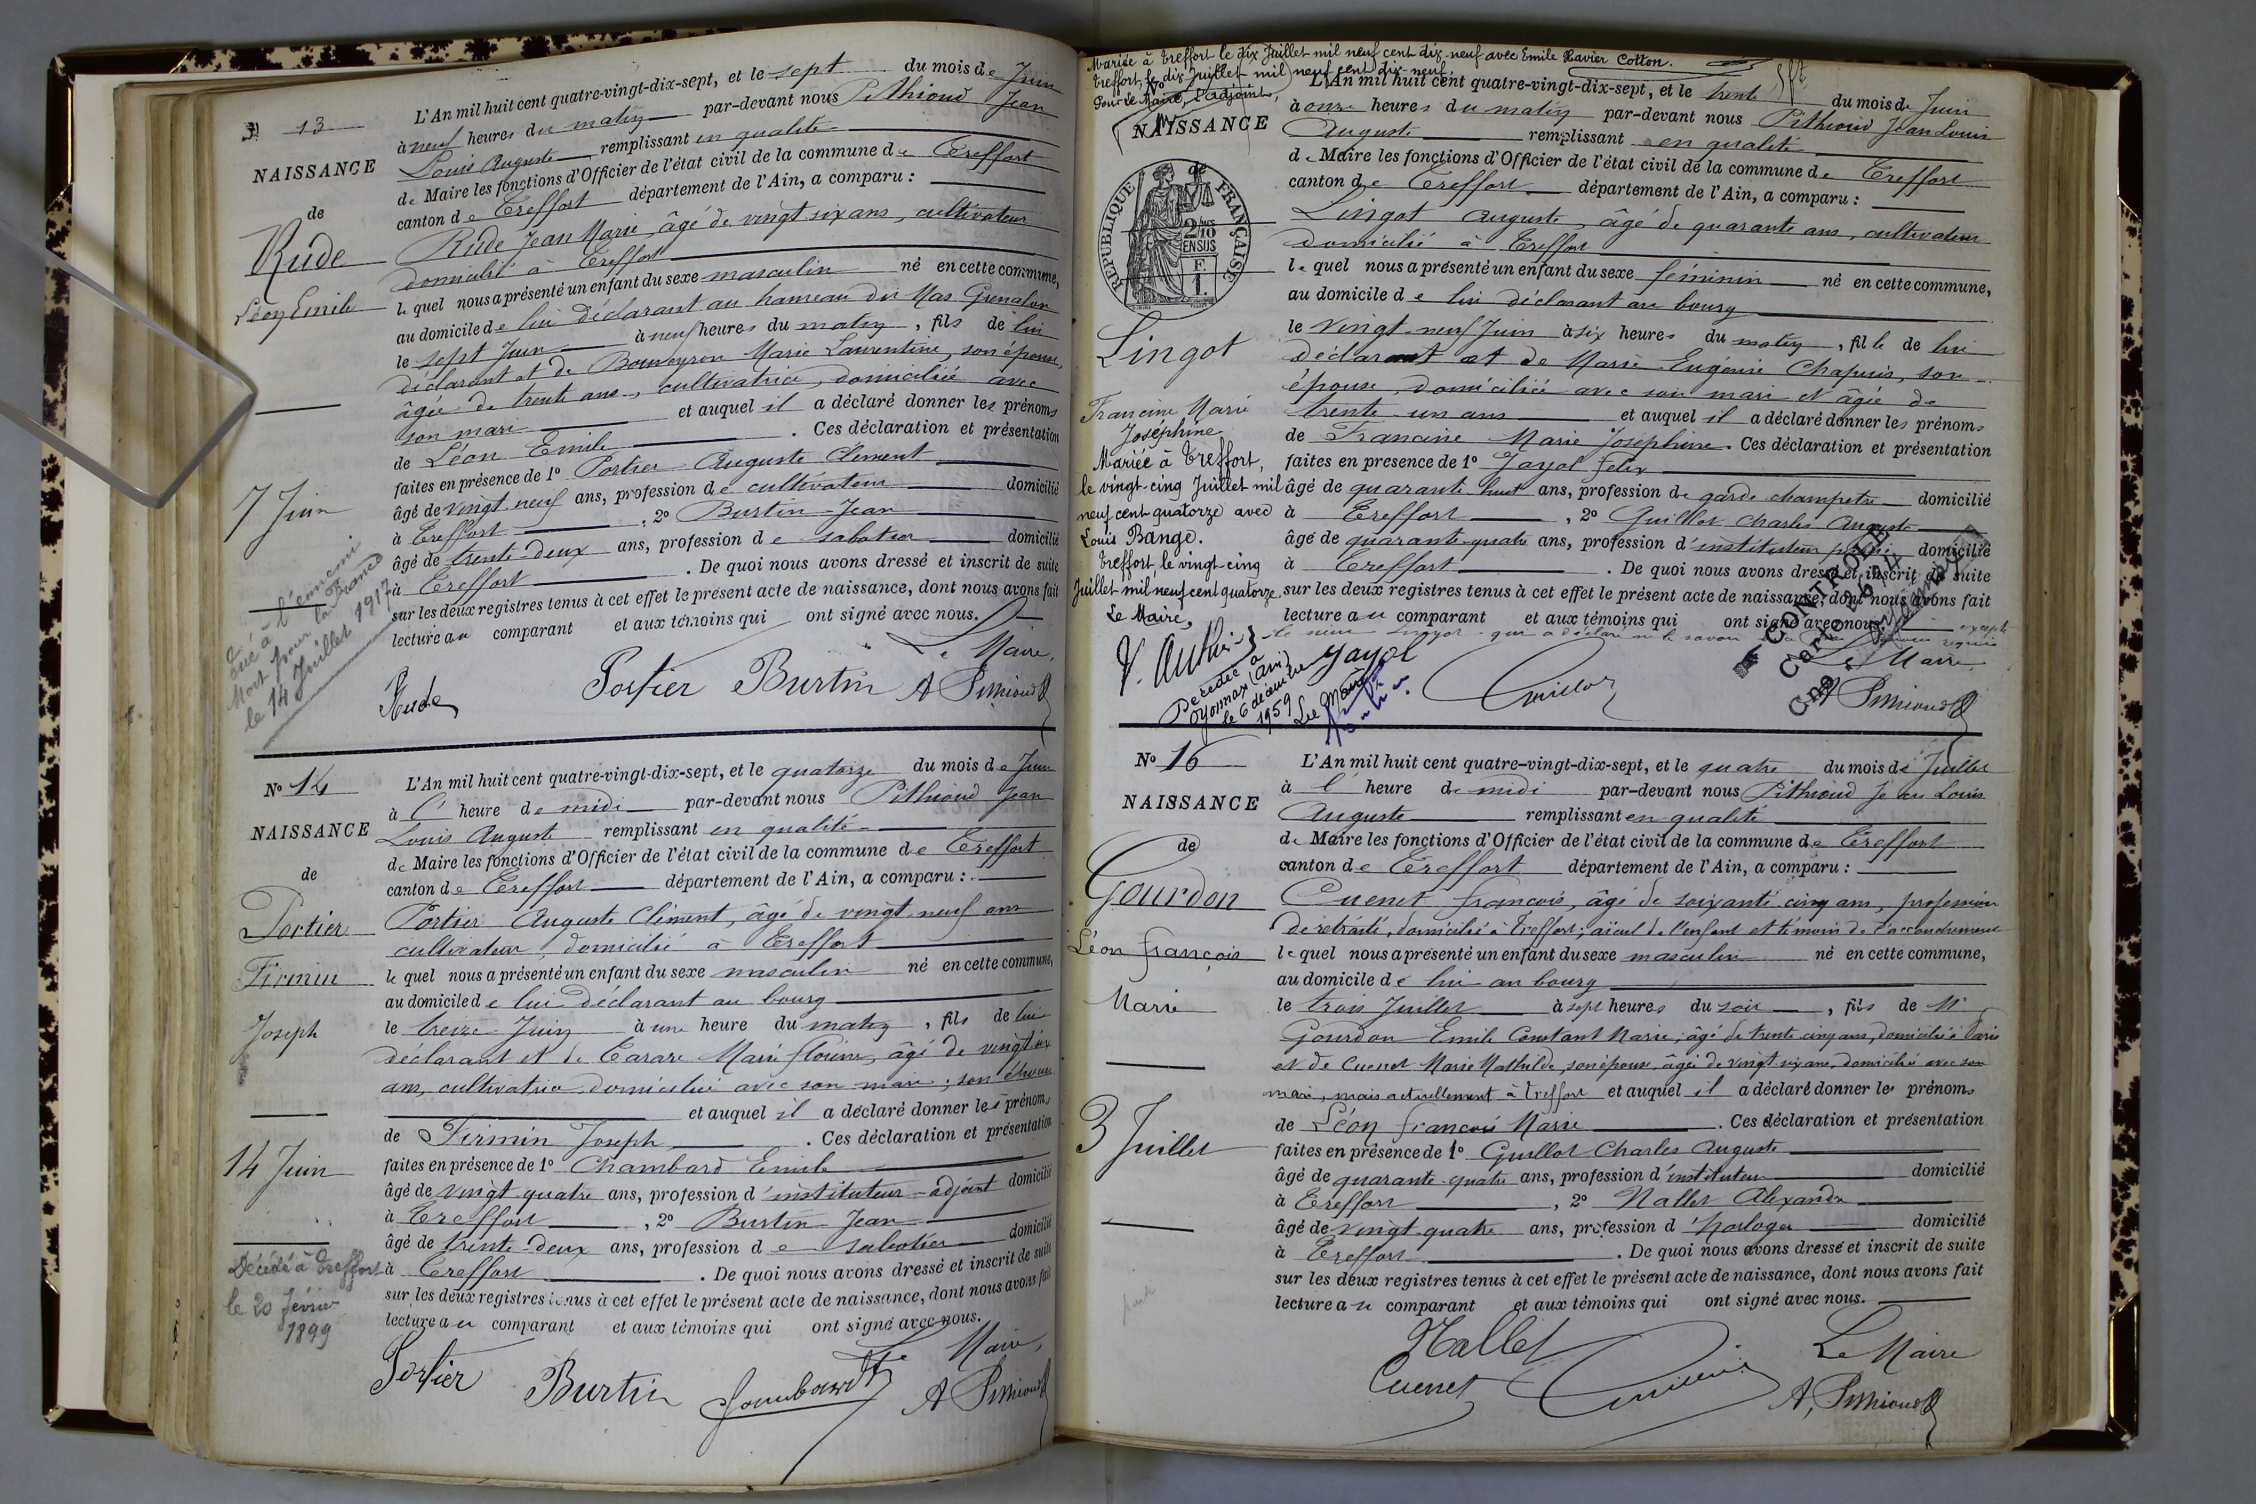 13
NAISSANCE
de
Rude
Léon Emile
7 Juin
Tué à l'ennemi
Mort pour la France
le 14 Juillet 1917
L'An mil huit cent quatre-vingt-dix-sept, et le sept du mois de Juin
à neuf heures du matin par-devant nous Pithioud Jean
Louis Auguste remplissant en qualité
de Maire les fonctions d'Officier de l'état civil de la commune de Treffort
canton de Treffort département de l'Ain, a comparu :
Rude Jean Marie, âgé de vingt six ans, cultivateur
domicilié à Treffort
le quel nous a présenté un enfant du sexe masculin né en cette commune,
au domicile de lui déclarant au hameau du Mas Grenalon
le sept Juin à neuf heures du matin, fils de lui
déclarant et de Marie Laurentine, son épouse,
âgée de trente ans, cultivatrice, domiciliée avec
son mari et auquel il a déclaré donner les prénoms
de Léon Emile. Ces déclaration et présentation
faites en présence de 1º Portier Auguste Clément
âgé de vingt neuf ans, profession de cultivateur domicilié
à Treffort, 2º Burtin Jean
âgé de trente-deux ans, profession de sabotier domicilié
à Treffort. De quoi nous avons dressé et inscrit de suite
sur les deux registres tenus à cet effet le présent acte de naissance, dont nous avons fait
lecture au comparant et aux témoins qui ont signé avec nous.
Le Maire,
Rude Portier Burtin A Pithioud
Nº 14
NAISSANCE
de
Portier
Firmin
Joseph
14 Juin
Décédé à Treffort
le 20 février
1899
L'An mil huit cent quatre-vingt-dix-sept, et le quatorze du mois de Juin
à l' heure de midi par-devant nous Pithioud Jean
Louis Auguste remplissant en qualité
de Maire les fonctions d'Officier de l'état civil de la commune de Treffort
canton de Treffort département de l'Ain, a comparu :
Portier Auguste Clément, âgé de vingt neuf ans
cultivateur, domicilié à Treffort
le quel nous a présenté un enfant du sexe masculin né en cette commune,
au domicile de lui déclarant au bourg
le treize Juin à une heure du matin, fils de lui
déclarant et de Tarare Marie, âgé de vingt six
ans, cultivatrice domiciliée avec son mari ; son épouse
et auquel il a déclaré donner les prénoms
de Firmin Joseph. Ces déclaration et présentation
faites en présence de 1º Chambard Emile
âgé de vingt quatre ans, profession d'instituteur-adjoint domicilié
à Treffort, 2º Burtin Jean
âgé de trente-deux ans, profession de sabotier domicilié
à Treffort. De quoi nous avons dressé et inscrit de suite
sur les deux registres tenus à cet effet le présent acte de naissance, dont nous avons fait
lecture au comparant et aux témoins qui ont signé avec nous.
Le Maire,
Portier Burtin Chambard A Pithioud
Mariée à Treffort le dix Juillet mil neuf cent dix-neuf avec Emile Xavier Cotton.
Treffort, le dix Juillet mil neuf cent dix-neuf.
Pour le Maire, l'adjoint,
Nº
NAISSANCE
de
RÉPUBLIQUE FRANÇAISE
2/10
EN SUS
F.
1.
Lingot
Francine Marie
Joséphine
Mariée à Treffort,
le vingt-cinq Juillet mil
neuf cent quatorze avec
Louis Bange.
Treffort le vingt-cinq
Juillet mil neuf cent quatorze,
Le Maire,
Décédée à
Oyonnax (Ain)
le 6 décembre
1959
Le Maire
L'An mil huit cent quatre-vingt-dix-sept, et le trente du mois de Juin
à onze heures du matin par-devant nous Pithioud Jean Louis
Auguste remplissant en qualité
de Maire les fonctions d'Officier de l'état civil de la commune de Treffort
canton de Treffort département de l'Ain, a comparu :
Lingot Auguste, âgé de quarante ans, cultivateur
domicilié à Treffort
le quel nous a présenté un enfant du sexe féminin né en cette commune,
au domicile de lui déclarant au bourg
le vingt-neuf Juin à six heures du matin, fille de lui
déclarant et de Marie Eugénie Chapuis, son
épouse, domiciliée avec son mari et âgée de
trente-un ans et auquel il a déclaré donner les prénoms
de Francine Marie Joséphine. Ces déclaration et présentation
faites en presence de 1º Jayol Felix
âgé de quarante huit ans, profession de garde champetre domicilié
à Treffort, 2º Guillot Charles Auguste
âgé de quarante quatre ans, profession d'instituteur domicilié
à Treffort. De quoi nous avons dressé et inscrit de suite
sur les deux registres tenus à cet effet le présent acte de naissance, dont nous avons fait
lecture au comparant et aux témoins qui ont signé avec nous, excepté
CONTROLE
Carte
Le Maire
Jayol Guillot A Pithioud
Nº 16
NAISSANCE
de
Gourdon
Léon françois
Marie
3 Juillet
L'An mil huit cent quatre-vingt-dix-sept, et le quatre du mois de Juillet
à l' heure de midi par-devant nous Pithioud Jean Louis
Auguste remplissant en qualité
de Maire les fonctions d'Officier de l'état civil de la commune de Treffort
canton de Treffort département de l'Ain, a comparu :
Cuenet françois, âgé de soixante cinq ans, profession
de retraité, domicilié à Treffort ; aïeul de l'enfant et témoin de l'accouchement
le quel nous a présenté un enfant du sexe masculin né en cette commune,
au domicile de lui au bourg
le trois Juillet à sept heures du soir, fils de Mr
Gourdon Emile Constant Marie, âgé de trente cinq ans, domicilié à Paris
et de Cuenet Marie Mathilde, son épouse, âgée de vingt six ans, domiciliée avec son
mari, mais actuellement à Treffort et auquel il a déclaré donner les prénoms
de Léon françois Marie. Ces déclaration et présentation
faites en présence de 1º Guillot Charles Auguste
âgé de quarante-quatre ans, profession d'instituteur domicilié
à Treffort, 2º Nallet Alexandre
âgé de vingt quatre ans, profession d'horloger domicilié
à Treffort. De quoi nous avons dressé et inscrit de suite
sur les deux registres tenus à cet effet le présent acte de naissance, dont nous avons fait
lecture au comparant et aux témoins qui ont signé avec nous.
Nallet Le Maire
Cuenet Guillot A, Pithioud